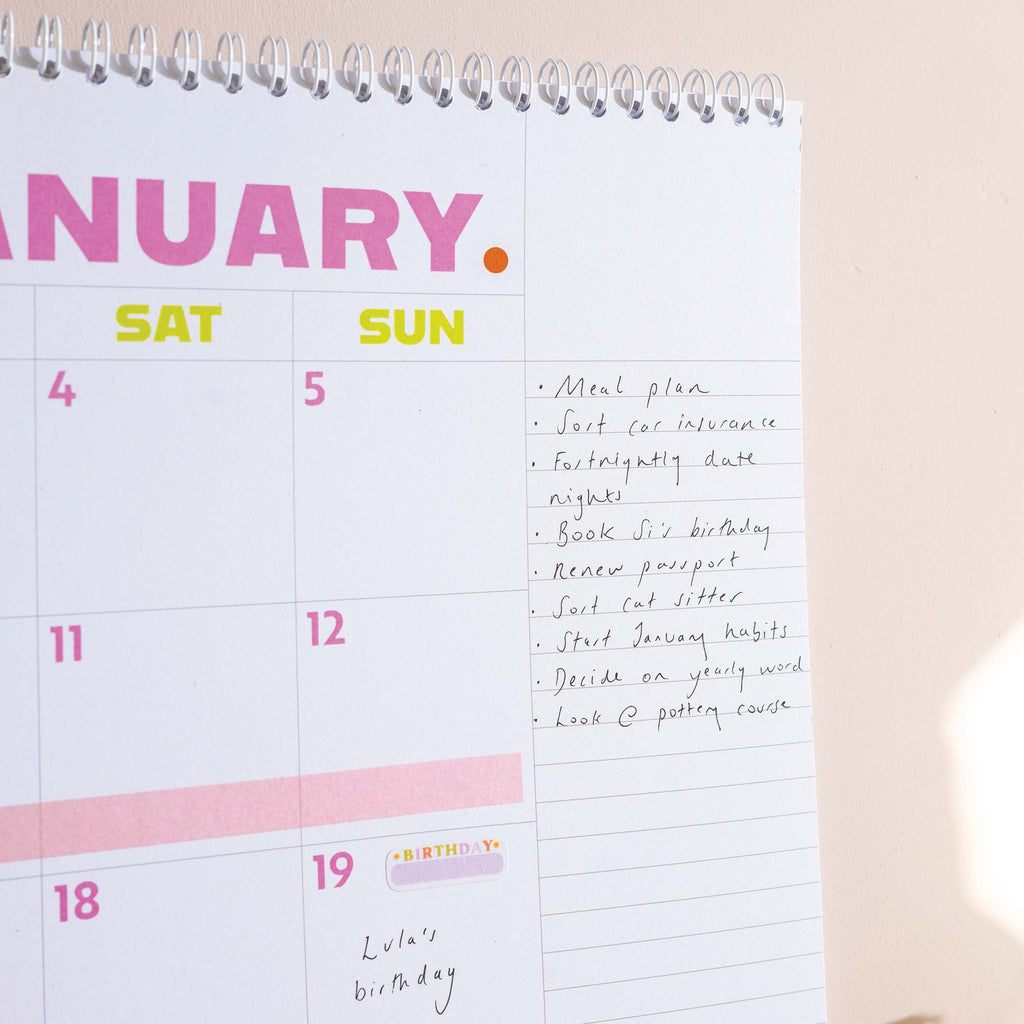 ANUARY.
SAT SUN
4 5
11 12
18 19
•BIRTHDAY•
Lula's
birthday
• Meal plan
• Sort car insurance
• Fortnightly date
nights
• Book Si's birthday
• Renew passport
• Sort cat sitter
• Start January habits
• Decide on yearly word
• Look @ pottery course